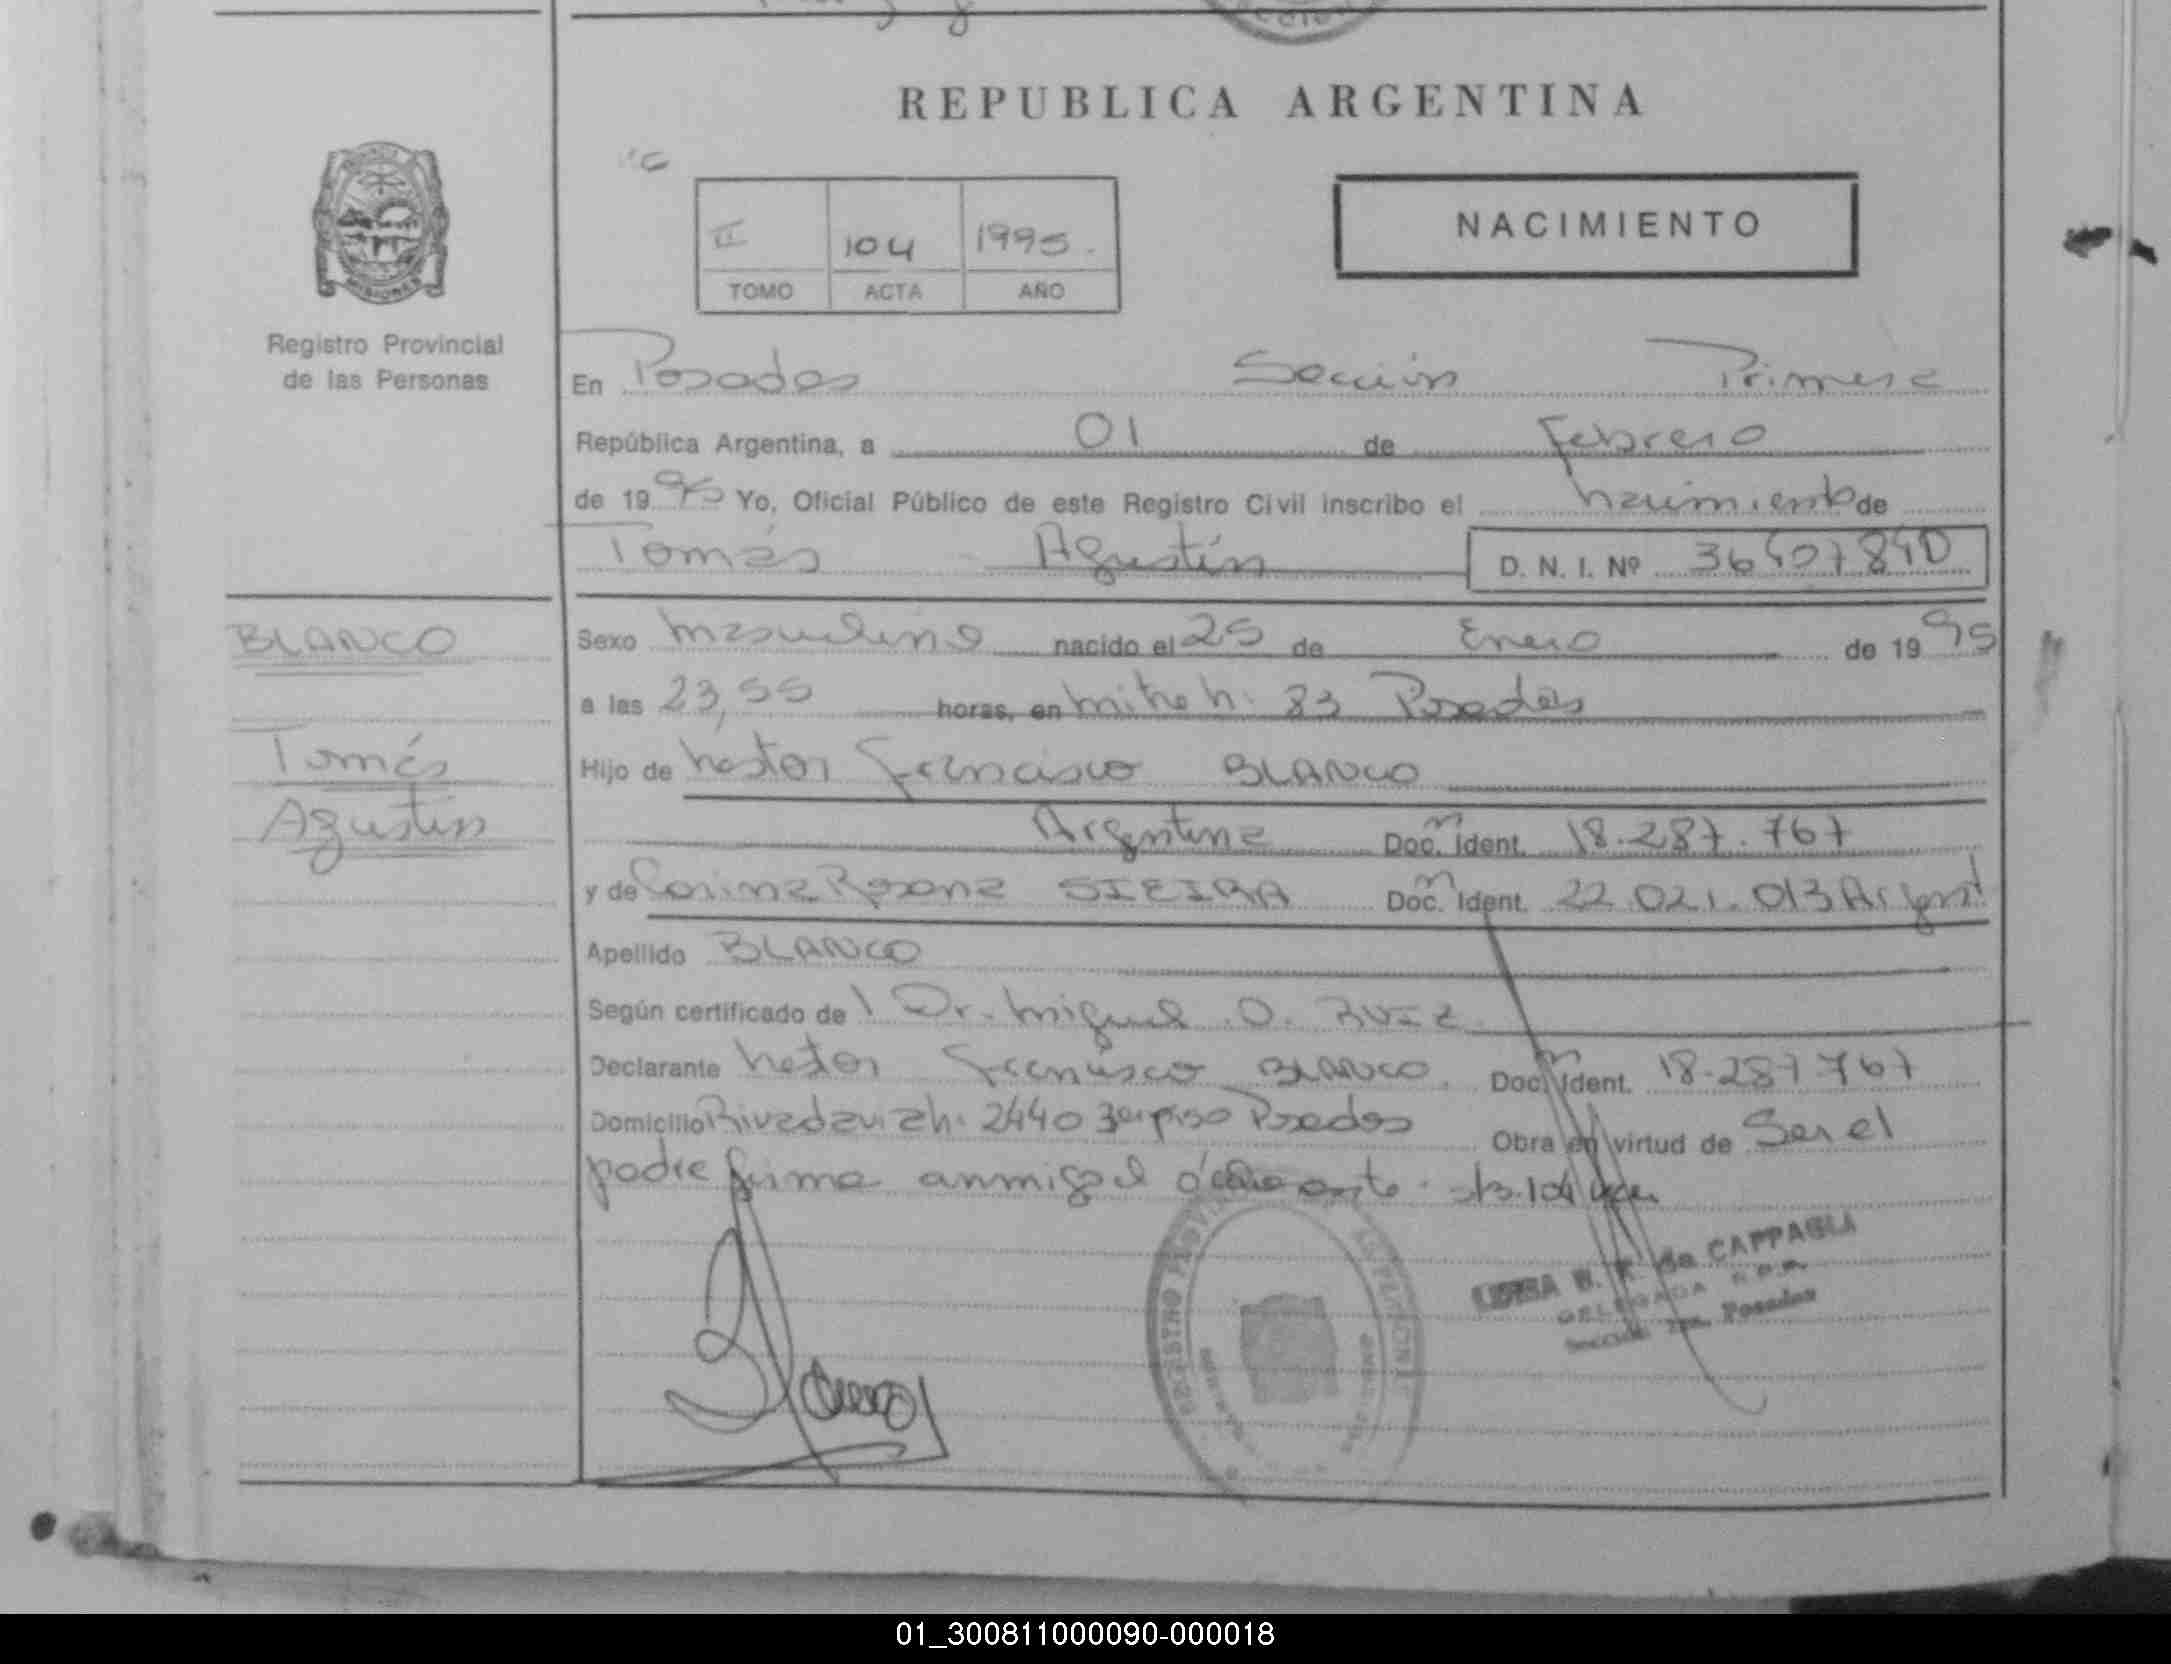 REPUBLICA ARGENTINA
II 104 1995.
TOMO ACTA AÑO
NACIMIENTO
PROVINCIA
MISIONES
Registro Provincial
de las Personas
En Posadas Sección Primera
República Argentina, a 01 de febrero
de 1995 Yo, Oficial Público de este Registro Civil inscribo el nacimiento de
Tomás Agustín D. N. I. Nº
BLANCO
Tomás
Agustín
Sexo masculino nacido el 25 de Enero de 1995
a las 23,55 horas, en mitre n. 83 Posadas
Hijo de nestor francisco BLANCO
Argentina Doc. Ident. 18.287.767
y de Corina Rosana SIEIRA Doc. Ident. 22.021.013 Argent
Apellido BLANCO
Según certificado de Dr. miguel O. RUIZ
Declarante nestor francisco BLANCO Doc. Ident. 18.287.767
Domicilio Rivadavia n. 2440 3er piso Posadas Obra en virtud de Ser el
padre firma
de CAPPAGLI
DELEGADA R.P.P.
Sección 1ra. Posadas
REGISTRO PROVINCIAL
01_300811000090-000018